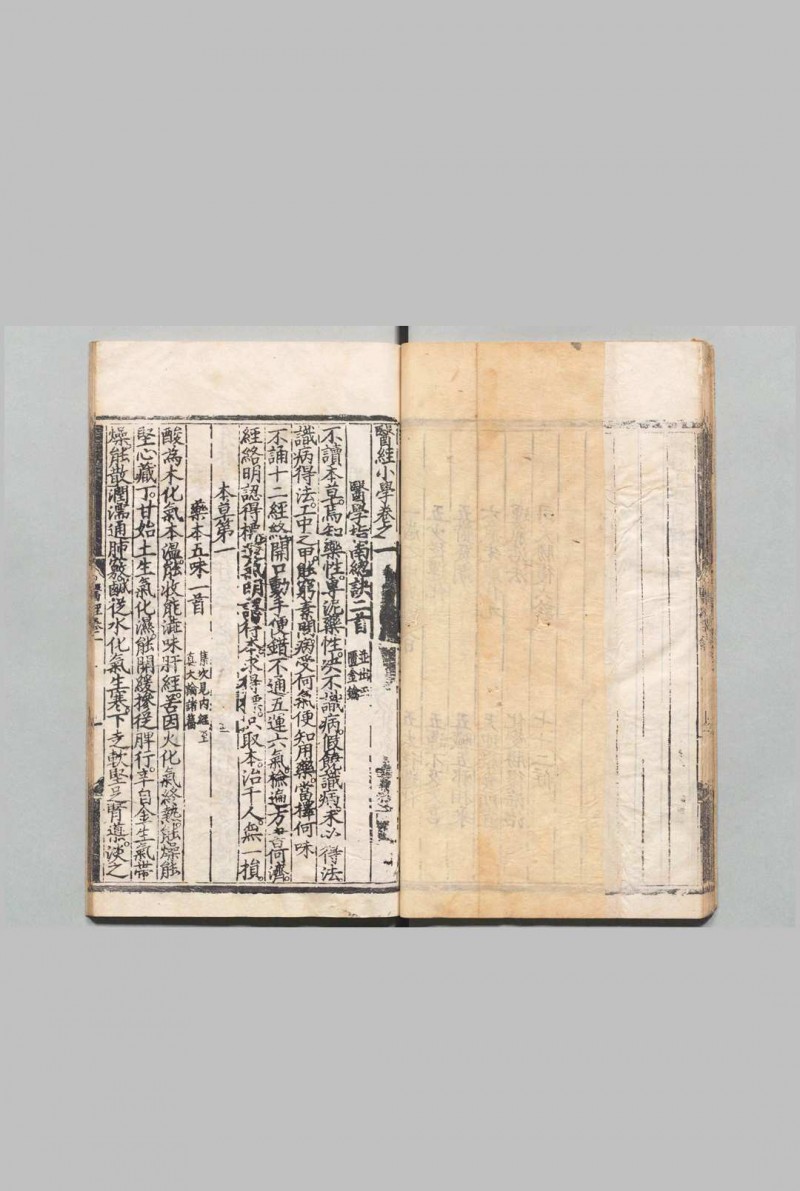 醫經小學卷之一
醫學指南總訣二首 並出
不讀本草焉知藥性專泥藥性決不識病假饒識病未必得法
識病得法工中之甲能窮素問病受何氣便知用藥當擇何味
不誦十二經絡開口動手便錯不通五運六氣檢遍方書何濟
經絡明認得標運氣明認得本求得標只取本治千人無一損
本草第一
藥本五味一首 集次見內經至真大論諸篇
酸為木化氣本溫能收能澁味肝經苦因火化氣終熱能燥能
堅心藏丁甘始土生氣化濕能開緩摻從脾行辛自金生氣帶
燥能散潤濡通肺竅鹹從水化氣生寒下走軟堅足腎道淡之
醫經卷一